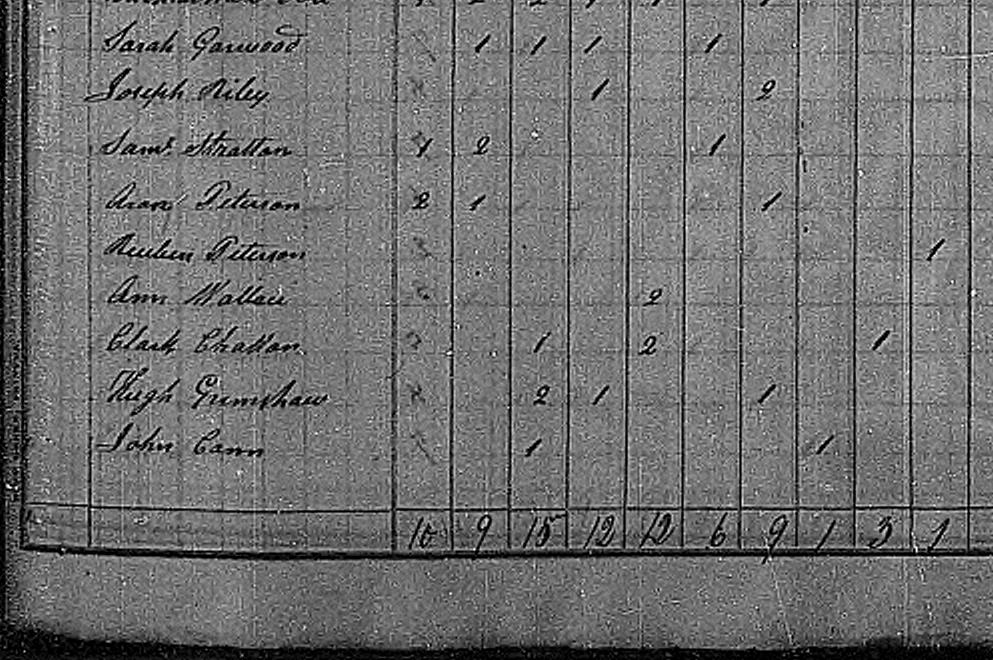 Sarah Garwood 1 1 1 1
Joseph Riley 1 2
Saml Stratton 1 2 1
Aron Peterson 2 1 1
Reuben Peterson 1
Ann Wallace 2
Clark Chattan 1 2 1
Hugh Grimshaw 2 1 1
John Cann 1 1
9 15 12 12 6 9 1 3 1